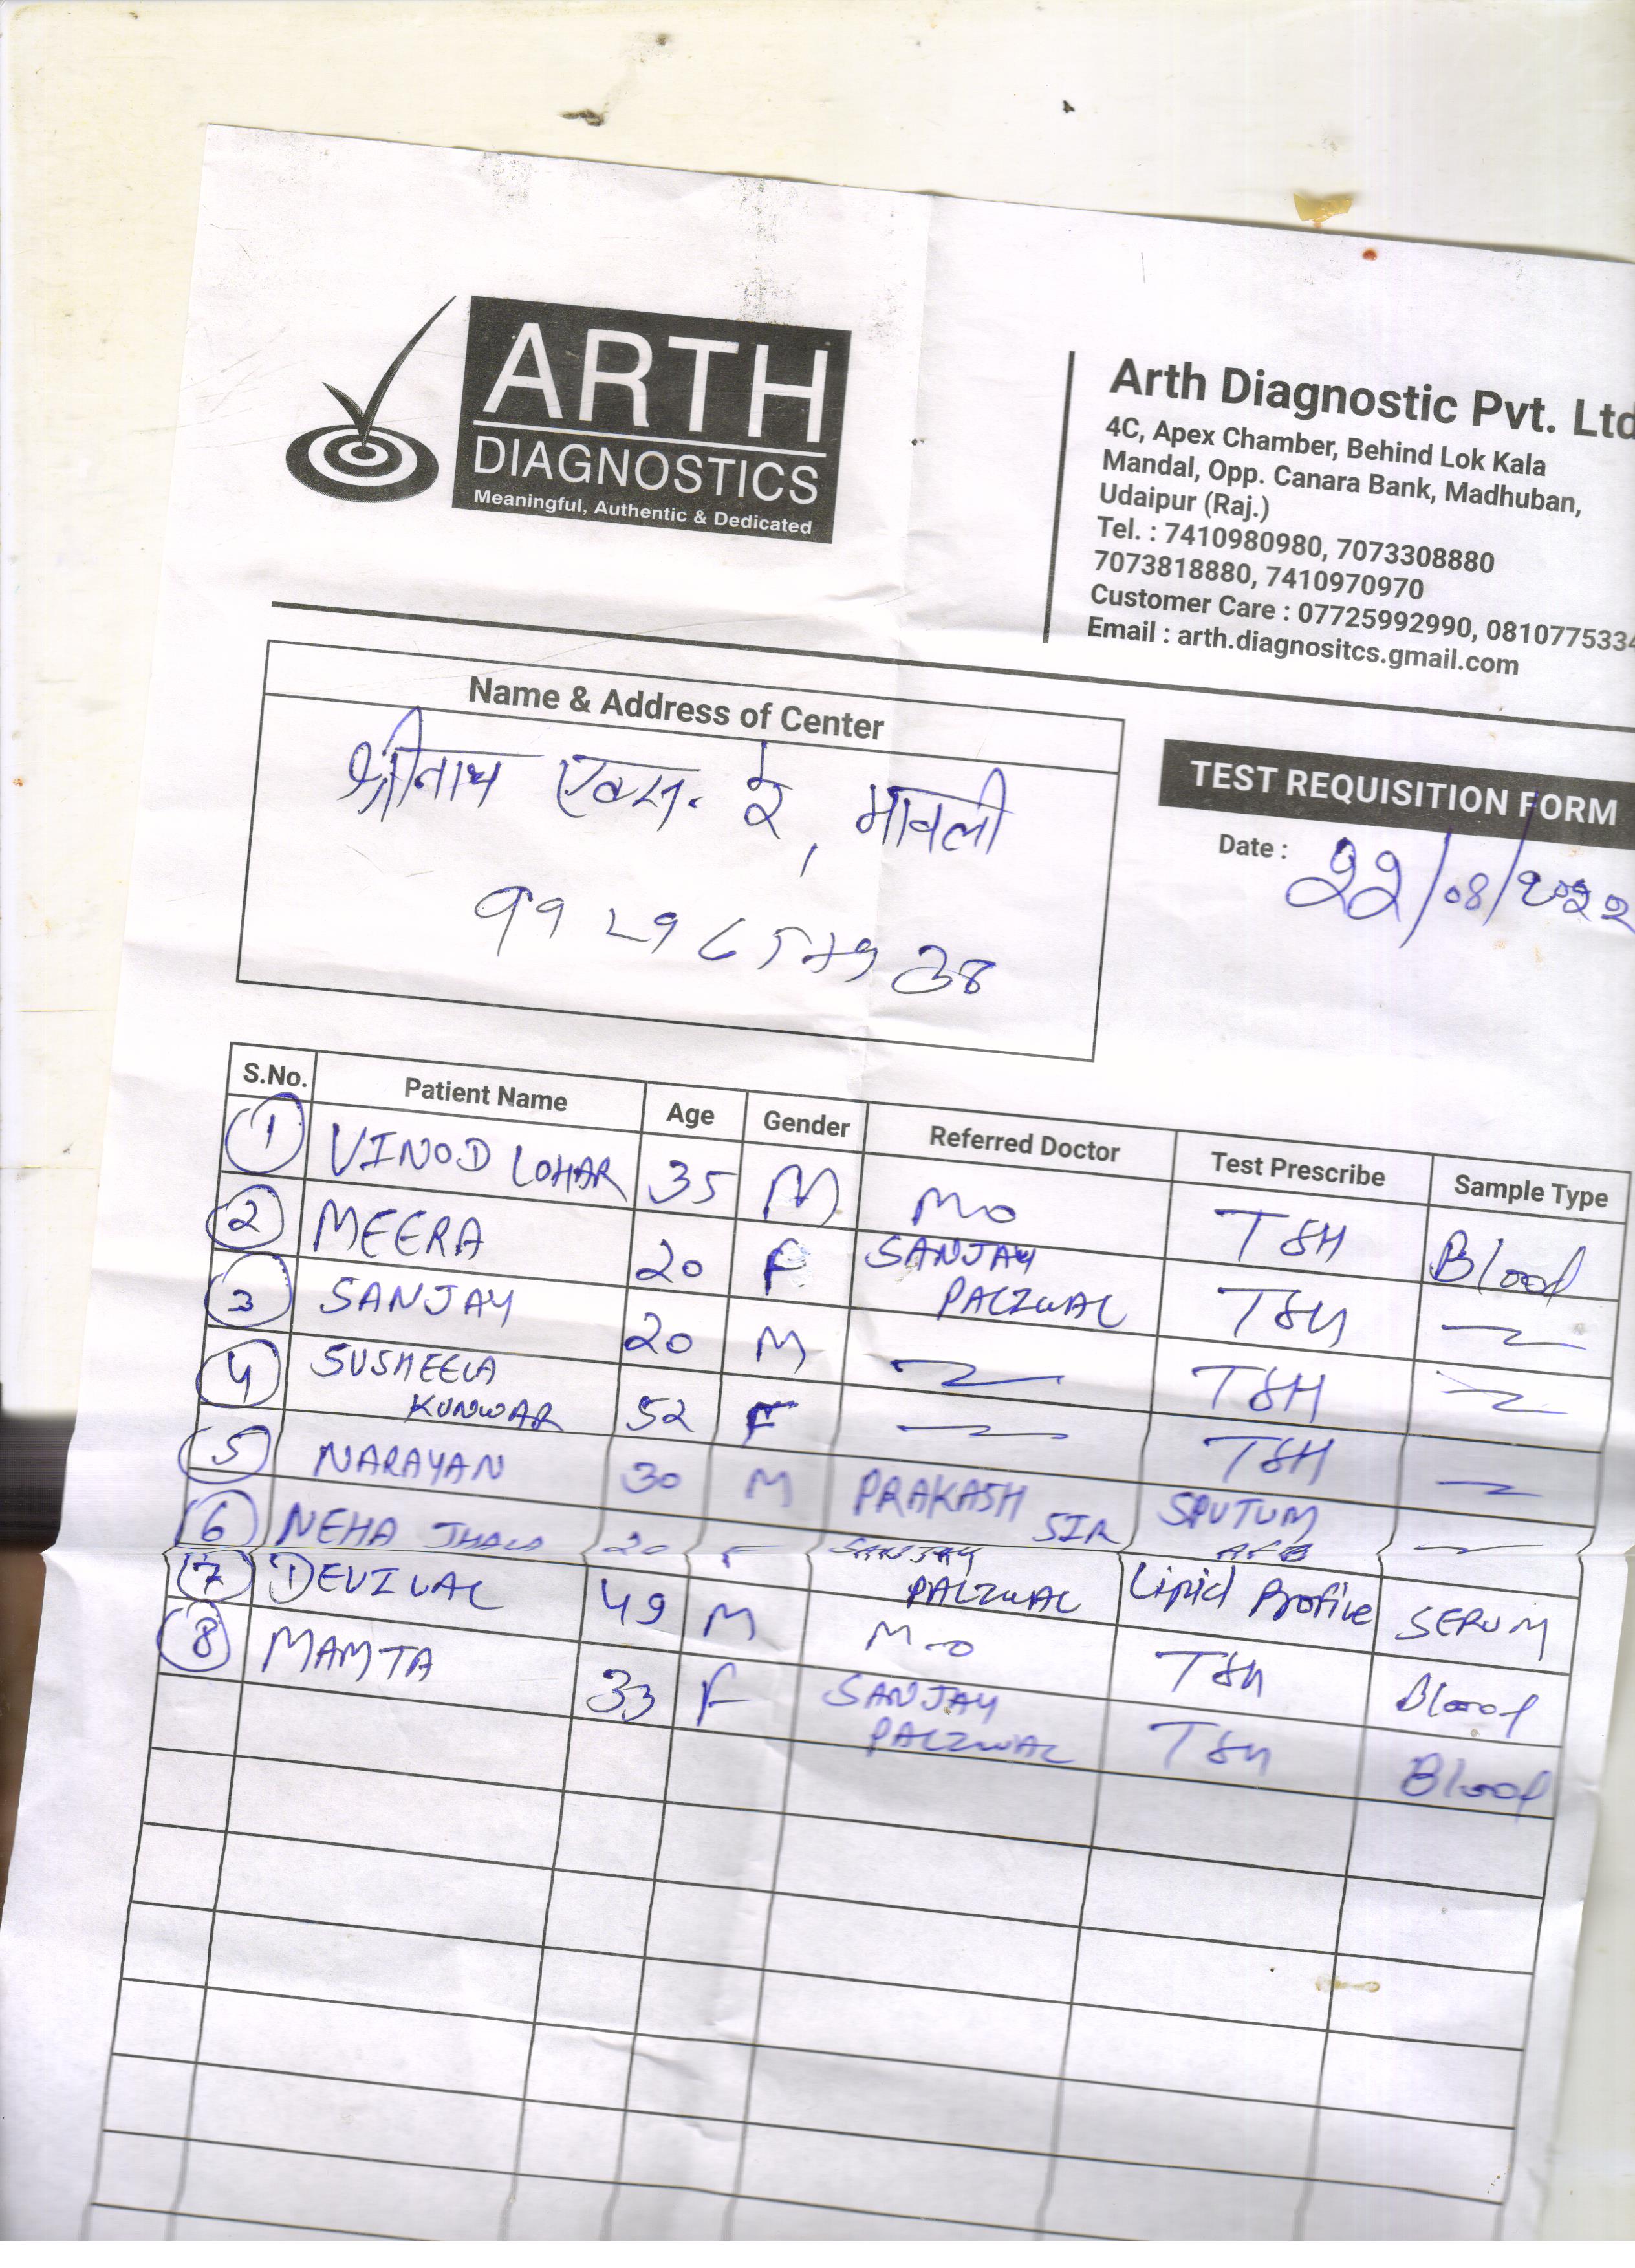 ARTH
DIAGNOSTICS
Meaningful, Authentic & Dedicated
Arth Diagnostic Pvt. Ltd
4C, Apex Chamber, Behind Lok Kala
Mandal, Opp. Canara Bank, Madhuban,
Udaipur (Raj.)
Tel. : 7410980980, 7073308880
7073818880, 7410970970
Customer Care : 07725992990, 0810775334
Email : arth.diagnositcs.gmail.com
Name & Address of Center
श्रीनाथ एक्स. रे, मावली
TEST REQUISITION FORM
Date : 22/08/2022
S.No. Patient Name Age Gender Referred Doctor Test Prescribe Sample Type
1 VINOD LOHAR 35 M MO TSH Blood
2 MEERA 20 F SANJAY PALIWAL TSH
3 SANJAY 20 M TSH
4 SUSHEELA KUNWAR 52 F TSH
5 NARAYAN 30 M PRAKASH SIR SPUTUM AFB
6 NEHA 20 F SANJAY PALIWAL Lipid Profile SERUM
7 DEVILAL 49 M M-O TSH Blood
8 MAMTA 33 F SANJAY PALIWAL TSH Blood